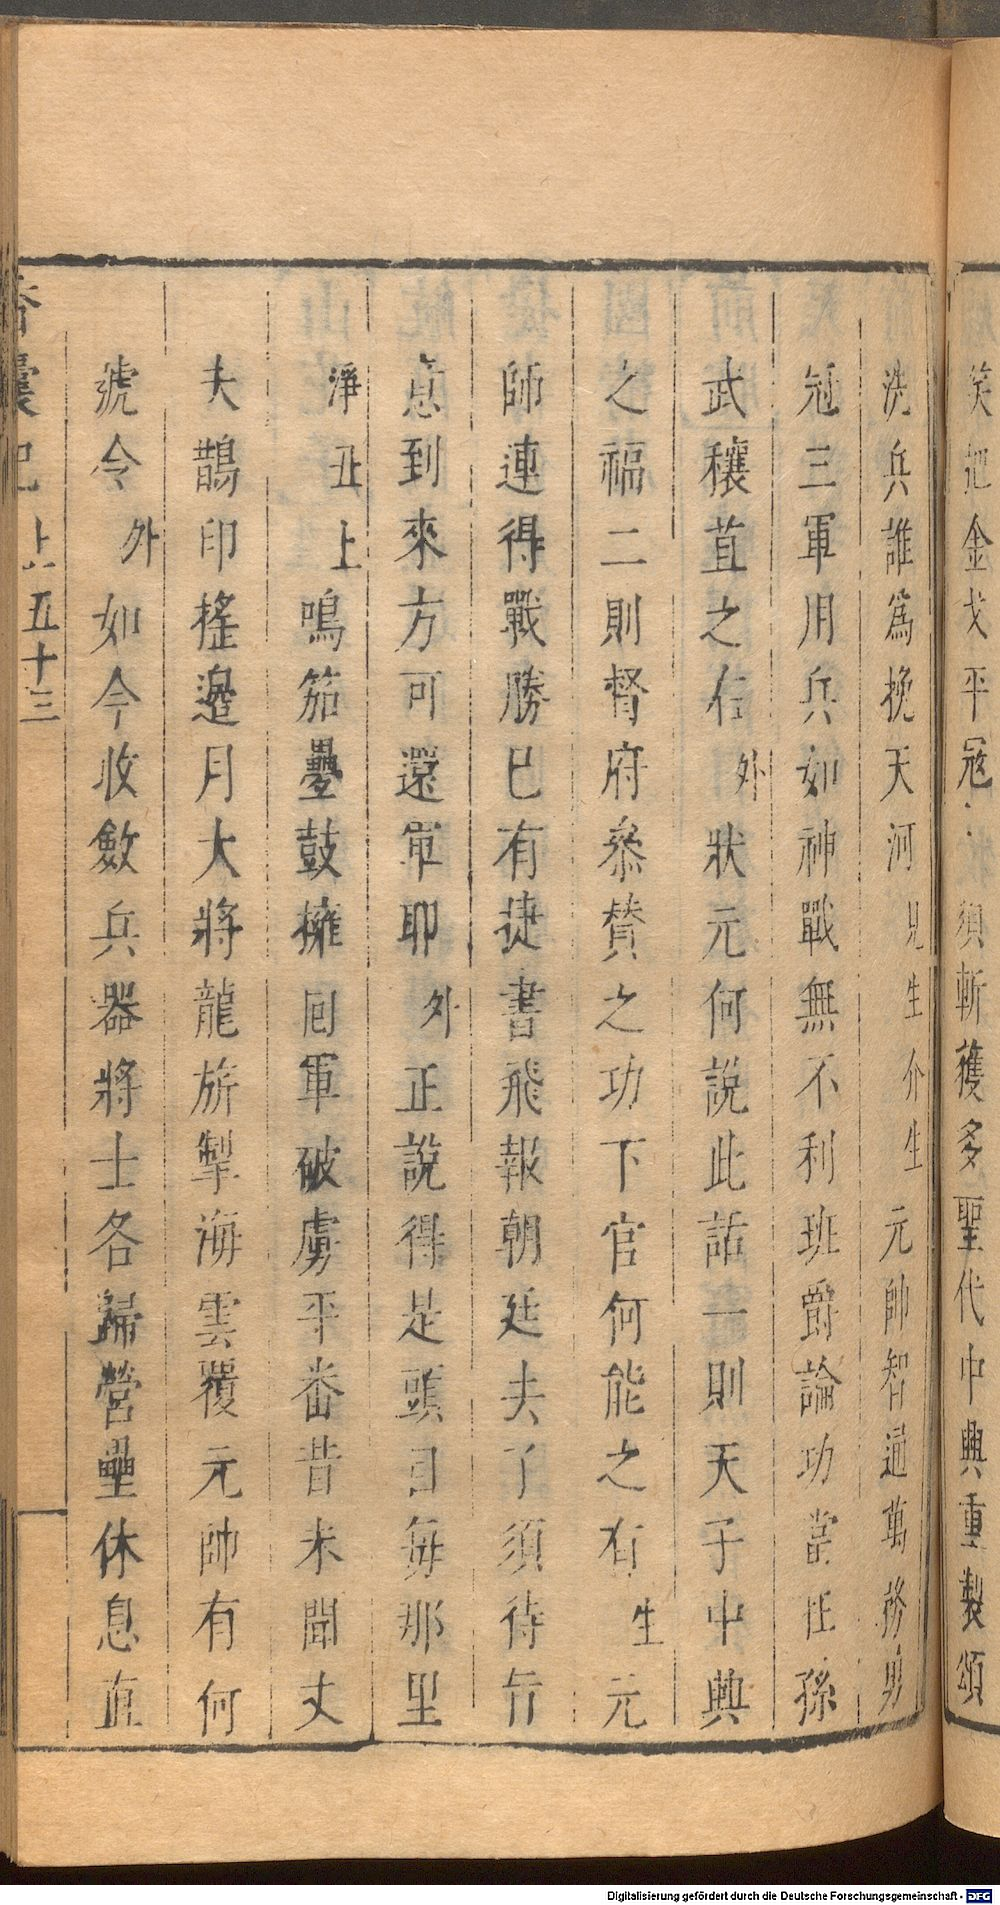 矣把金戈平寇須斬獲多聖代中興重製頌
洗兵誰爲挽天河見生介生元帥智過萬務勇
冠三軍用兵如神戰無不利班爵論功當在孫
武穰苴之右外狀元何說此話一則天子中興
之福二則督府叅賛之功下官何能之有生元
師連得戰勝已有捷書飛報朝廷去了須待旨
意到來方可還軍耶外正說得是頭目每那里
淨丑上鳴笳疊鼓擁回軍破虜平番昔未聞丈
夫鵲印搖邉月大將龍旂掣海雲覆元帥有何
號令外如今收斂兵器將士各歸營壘休息直
香囊記上五十三
Digitalisierung gefördert durch die Deutsche Forschungsgemeinschaft - DFG